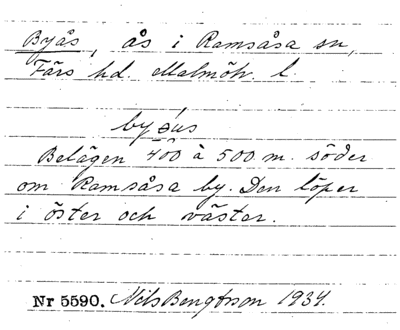 Byås, ås i Ramsåsa sn,
Färs hd. Malmöh. l.
Belägen 400 à 500 m. söder
om Ramsåsa by. Den löper
i öster och väster.
Nr 5590. Nils Bengtsson 1934.